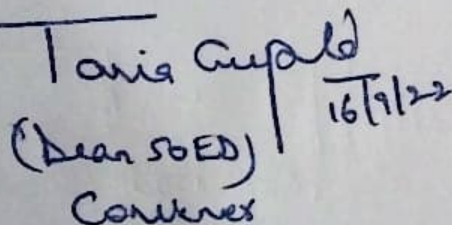 Tania Gupta
16/9/22
(Dean SOED)
Convener